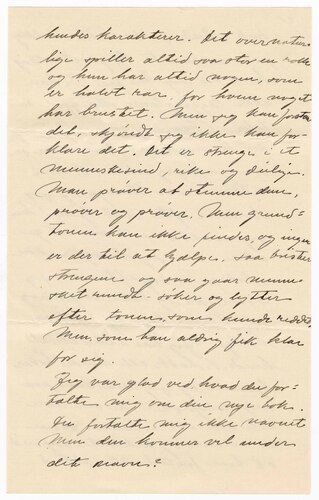 hendes karakterer. Det overnatur-
lige spiller altid saa stor en rolle
og hun har altid nogen, som
er halvt rar, for hvem noget
har brustet. Men jeg kan forstaa
det, skjøndt jeg ikke kan for-
klare det. Det er strenge i et
menneskesind, rike og deilige.
Man prøver at stemme dem,
prøver og prøver. Men grund-
tonen kan ikke findes, og ingen
er der til at hjælpe. saa brister
strengene og saa gaar menne-
sket rundt - søker og lytter
efter tonen, som kunde reddet.
Men, som han aldrig fik klar
for sig.
Jeg var glad ved, hvad du for-
talte mig om din nye bok.
Du fortalte mig ikke navnet
Men den kommer vel under
dit navn?